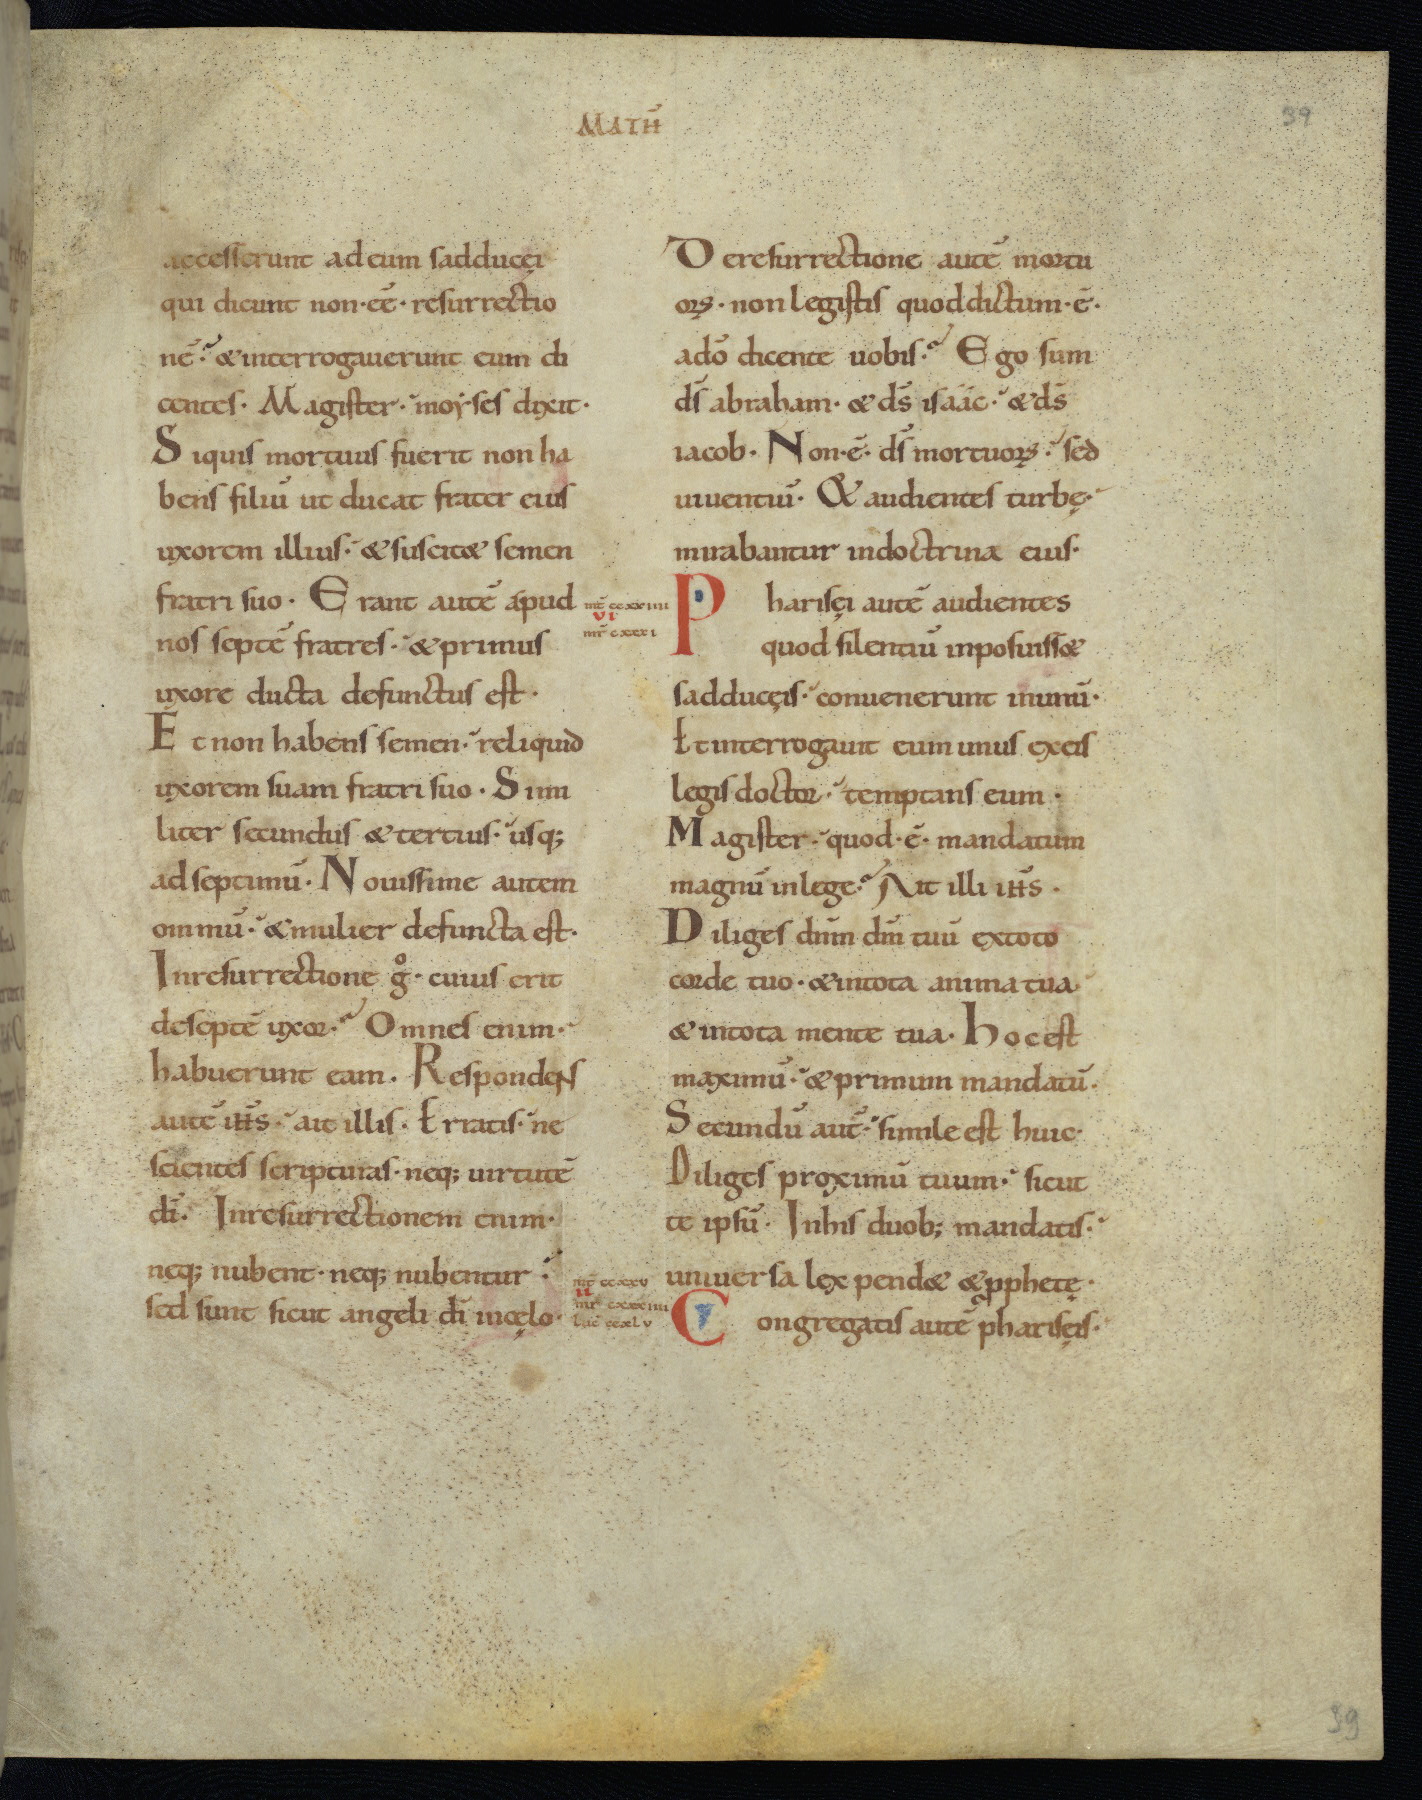 MATH̅
39
accesserunt ad eum sadducęi
qui dicunt non·eē· resurrectio
nē· & interrogauerunt eum di
centes· Magister· moẏses dixit·
Siquis mortuus fuerit non ha
bens filiū ut ducat frater eius
uxorem illius· & suscit& semen
fratri suo· Erant autē apud
nos septē fratres· & primus
uxore ducta defunctus est·
Et non habens semen· reliquid
uxorem suam fratri suo· Simi
liter secundus & tertius· usq;
ad septimū· Nouissime autem
omniū· & mulier defuncta est·
Inresurrectione gͦ· cuius erit
de septē uxor· Omnes enim·
habuerunt eam· Respondens
autē ih̅s· ait illis· Erratis· ne
scientes scripturas· neq; uirtutē
dī· Inresurrectionem enim·
neq; nubent· neq; nubentur·
sed sunt sicut angeli dī incęlo·
De resurrectione autē mortu
oꝝ· non legistis quod dictum·ē·
adō dicente uobis· Ego sum
ds̄ abraham· & ds̄ isáác· & ds̄
iacob· Non·ē· ds̄ mortuoꝝ· sed
uiuentiū· Et audientes turbę·
mirabantur indoctrina eius·
mt̅ ccxxiiii
VI
mr̅ cxxxi
Pharisęi autē audientes
quod silentiū inposuiss&
sadducęis· conuenerunt inunū·
Et interrogauit eum unus exeis
legis doctor· temptans eum·
Magister· quod·ē· mandatum
magnū inlege· Ait illi ih̅s·
Diliges dn̄m dm̄ tuū extoto
corde tuo· & intota anima tua·
& intota mente tua· Hoc est
maximū· & primum mandatū·
Secundū aut̄· simile est huic·
Diliges proximū tuum· sicut
te ipsū· Inhis duob; mandatis·
uniuersa lex pend& & pphetę·
mt̅ ccxxv
II
mr̅ cxxxiiii
luc̅ ccxlv
Congregatis autē pharisęis·
39